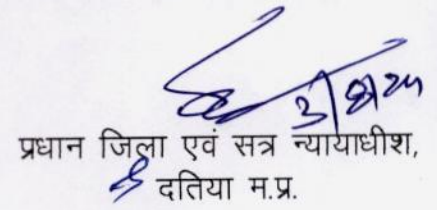 प्रधान जिला एवं सत्र न्यायाधीश,
दतिया म.प्र.